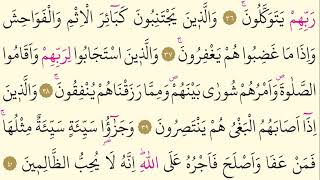 رَبِّهِمْ يَتَوَكَّلُونَ ۚ ﴿٣٦﴾ وَالَّذٖينَ يَجْتَنِبُونَ كَبَٓائِرَ الْاِثْمِ وَالْفَوَاحِشَ
وَاِذَا مَا غَضِبُوا هُمْ يَغْفِرُونَ ۚ ﴿٣٧﴾ وَالَّذٖينَ اسْتَجَابُوا لِرَبِّهِمْ وَاَقَامُوا
الصَّلٰوةَ ۖ وَاَمْرُهُمْ شُورٰى بَيْنَهُمْ ۖ وَمِمَّا رَزَقْنَاهُمْ يُنْفِقُونَ ۚ ﴿٣٨﴾ وَالَّذٖينَ
اِذَٓا اَصَابَهُمُ الْبَغْيُ هُمْ يَنْتَصِرُونَ ﴿٣٩﴾ وَجَزٰٓؤُا سَيِّئَةٍ سَيِّئَةٌ مِثْلُهَا ۚ
فَمَنْ عَفَا وَاَصْلَحَ فَاَجْرُهُ عَلَى اللّٰهِ ۜ اِنَّهُ لَا يُحِبُّ الظَّالِمٖينَ ﴿٤٠﴾